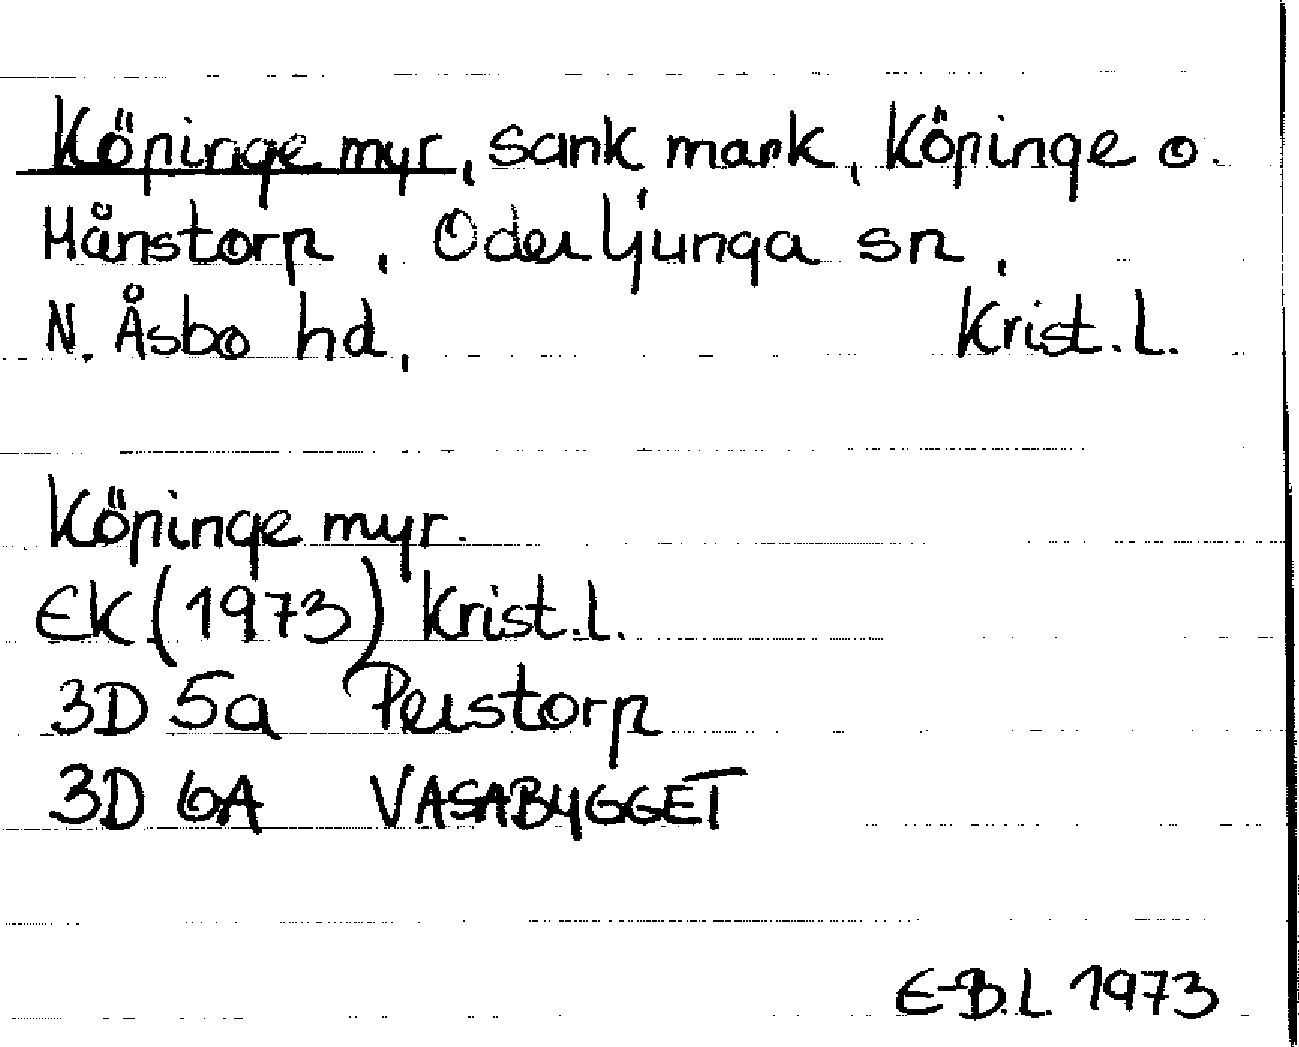 Köpinge myr, sank mark, Köpinge o.
Månstorp, Oderljunga sn,
N. Åsbo hd, Krist. l.
Köpinge myr.
EK (1973) Krist. l.
3D 5a Perstorp
3D 6A VASABYGGET
E-B.L. 1973